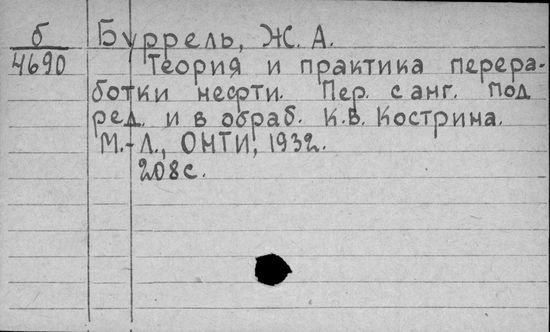 б
4690
Буррель, Ж. А.
Теория и практика перера-
ботки нефти. Пер. с анг. под
ред. и в обраб. К.В. Кострина.
М.-Л., ОНТИ, 1932.
208 с.